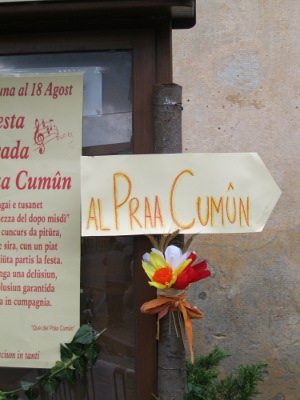 una al 18 Agost
esta
rada
aa Cumûn
gai e tusanet
ezza del dopo misdì"
cuncurs da pitüra,
e sira, cun un piat
iüta partis la festa.
nga una delüsiun,
olusiun garantida
a in cumpagnia.
"Quei del Praa Cumün"
AL PRAA CUMÛN